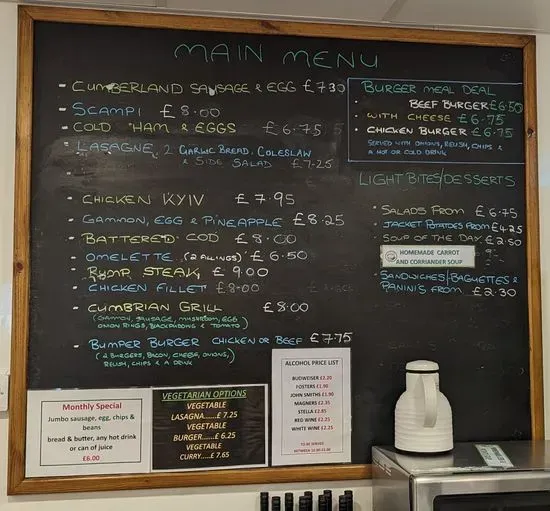 MAIN MENU
- CUMBERLAND SAUSAGE & EGG £7.30
- SCAMPI £8.00
- COLD HAM & EGGS £6.75
- LASAGNE, 2 GARLIC BREAD, COLESLAW
& SIDE SALAD £7.25
- CHICKEN KYIV £7.95
- GAMMON, EGG & PINEAPPLE £8.25
- BATTERED COD £8.00
- OMELETTE (2 FILLINGS) £6.50
- RUMP STEAK £9.00
- CHICKEN FILLET £8.00
- CUMBRIAN GRILL £8.00
(GAMMON, SAUSAGE, MUSHROOM, EGG,
ONION RINGS, BLACKPUDDING & TOMATO)
- BUMPER BURGER CHICKEN OR BEEF £7.75
(2 BURGERS, BACON, CHEESE, ONIONS,
RELISH, CHIPS & A DRINK
BURGER MEAL DEAL
• BEEF BURGER £6.50
• WITH CHEESE £6.75
• CHICKEN BURGER £6.75
SERVED WITH ONIONS, RELISH, CHIPS &
A HOT OR COLD DRINK
LIGHT BITES/DESSERTS
• SALADS FROM £6.75
JACKET POTATOES FROM £4.25
SOUP OF THE DAY £2.50
HOMEMADE CARROT
AND CORRIANDER SOUP
SANDWICHES/BAGUETTES &
PANINI'S FROM £2.30
Monthly Special
Jumbo sausage, egg, chips &
beans
bread & butter, any hot drink
or can of juice
£6.00
VEGETARIAN OPTIONS
VEGETABLE
LASAGNA.....£ 7.25
VEGETABLE
BURGER......£ 6.25
VEGETABLE
CURRY.....£ 7.65
ALCOHOL PRICE LIST
BUDWEISER £2.20
FOSTERS £1.90
JOHN SMITHS £1.90
MAGNERS £2.35
STELLA £2.85
RED WINE £2.25
WHITE WINE £2.25
TO BE SERVED